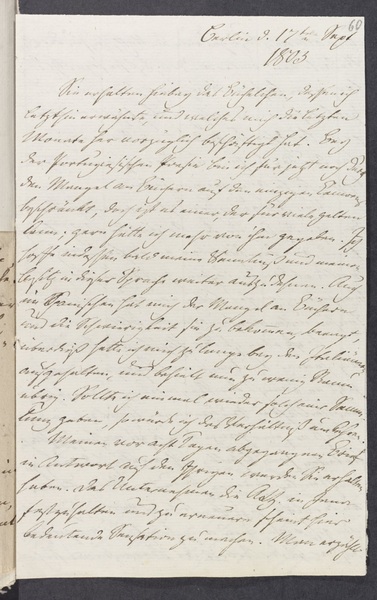 60
Berlin d. 17ten Sept
1803
Sie erhalten hiebey das Büchelchen, dessen ich
letzthin erwähnte, und welches mich die letzten
Monate her vorzüglich beschäftigt hat. Bey
der Portugiesischen Poesie bin ich für jetzt noch durch
den Mangel an Büchern auf den einzigen Camoens
beschränkt, doch ist es einer, der für viele gelten
kann; gern hätte ich mehr von ihm gegeben. Ich
hoffe indessen bald meine Sammlung und meine
in dieser Sprache weiter auszudehnen. Auch
im Spanischen hat mich der Mangel an Büchern
und die Schwierigkeit sie zu bekommen, beengt,
überdieß hatte ich mich zu lange bey den Italiänern
aufgehalten, und behielt nun zu wenig Raum
übrig. Sollte ich einmal wieder solch eine Samm-
lung geben, so würde ich das Verhältniß umkehren.
Meinen vor acht Tagen abgegangenen Brief
in Antwort auf den Ihrigen werden Sie erhalten
haben. Das Unternehmen die in Jena
festzuhalten und zu erneuern scheint hier
bedeutende Sensation zu machen. Man erzählt